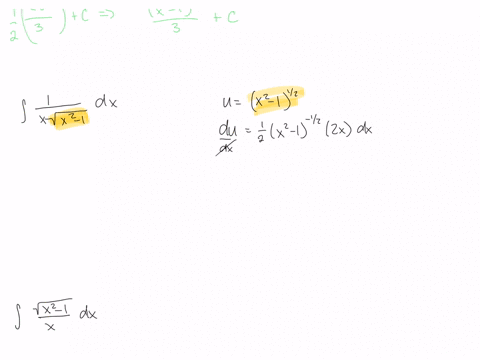 1/2 ( /3 ) + C ⇒ (x²-1) /3 + C
∫ 1/(x√(x²-1)) dx
u = (x²-1)^(1/2)
du/dx = 1/2 (x²-1)^(-1/2) (2x) dx
∫ √(x²-1)/x dx